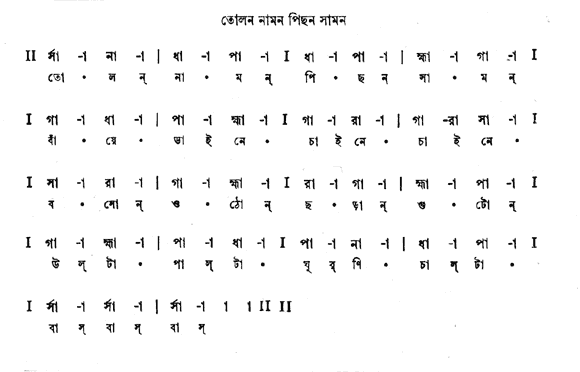 তোলন নামন পিছন সামন
II র্সা -া না -া | ধা -া পা -া I ধা -া পা -া | হ্মা -া গা -া I
তো • ল ন্ না • ম ন্ পি • ছ ন্ সা • ম ন্
I গা -া ধা -া | পা -া হ্মা -া I গা -া রা -া | গা -রা সা -া I
বাঁ • য়ে • ডা ই নে • চা ই নে • চা ই নে •
I সা -া রা -া | গা -া হ্মা -া I রা -া গা -া | হ্মা -া পা -া I
ব • সোন্ ও • ঠো ন্ ছ • ড়া ন্ গু • টো ন্
I গা -া হ্মা -া | পা -া ধা -া I পা -া না -া | ধা -া পা -া I
উ ল্ টা • পা ল্ টা • ঘূ র্ ণি • চা ল্ টা •
I র্সা -া র্সা -া | র্সা -া া া II II
বা স্ বা স্ বা স্